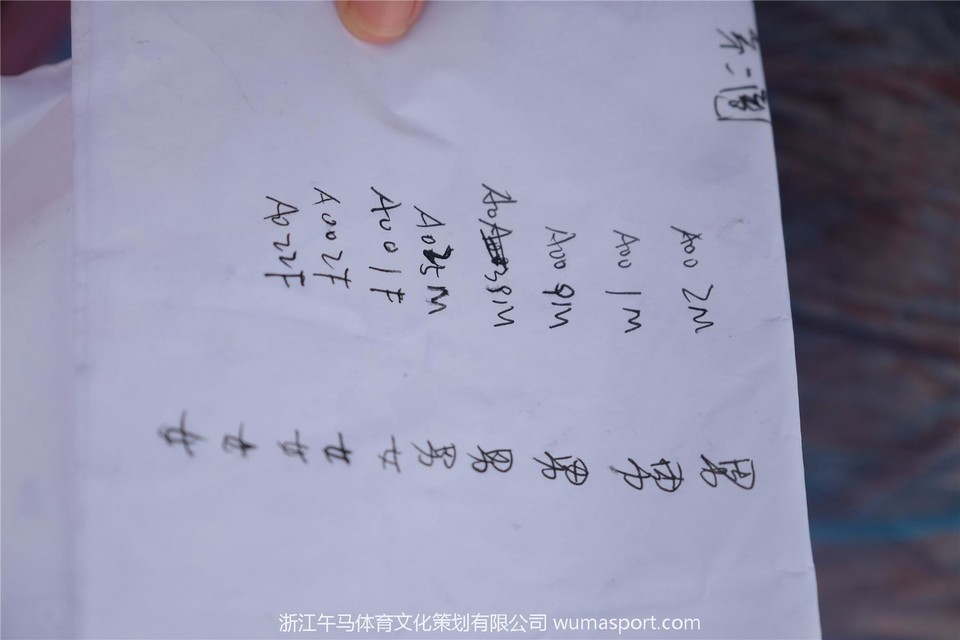 第二圈
A002M 男
A001M 男
A009M 男
A0381M 男
A025M 男
A001F 女
A002F 女
A022F 女
女
女
浙江午马体育文化策划有限公司 wumasport.com